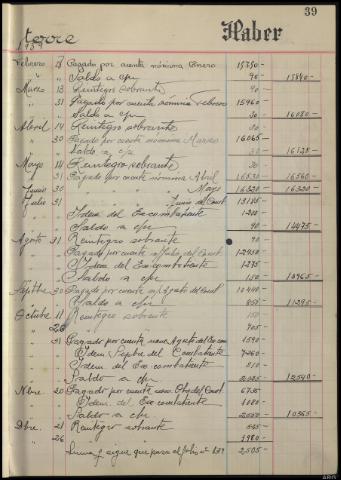 39
terre Haber
1937
Febrero 8 Pagado por cuenta nómina Enero 15750-
" " Saldo a c/n 90- 15840-
Marzo 13 Reintegro sobrante 90-
" 31 Pagado por cuenta nómina Febrero 15960-
" " Saldo a c/n 30- 16080-
Abril 14 Reintegro sobrante 30-
" 30 Pagado por cuenta nómina Marzo 16065-
" " Saldo a c/n 30- 16125-
Mayo 14 Reintegro sobrante 30-
" 31 Pagado por cuente nomina Abril 16530- 16560-
Junio 30 " " " " Mayo 16320- 16320-
Julio 31 " " " " Junio del Comb 13185-
" " Idem del Excombatiente 1200-
" " Saldo a c/n 90- 14475-
Agosto 31 Reintegro sobrante 90-
" " Pagado por cuente n/ Julio del Comb 12450-
" " Idem del Excombatiente 1275-
" " Saldo a c/n 150- 13965-
Sepbre 30 Pagado por cuente n/ Agosto del Comb 10440-
" " Saldo a c/n 855- 11295-
Octubre 11 Reintegro sobrante 150-
" 26 " " 705-
" 31 Pagado por cuente nom Agosto del Ex com 1590-
" " Idem Sepbre del Combatiente 7260-
" " Idem del Ex combatiente 810-
" " Saldo a c/n 2025- 12540-
Nbre 20 Pagado por cuente nom Obre del Comb 6735-
" " Idem del Ex combatiente 1080-
" " Saldo a c/n 2550- 10365-
Dbre 21 Reintegro sobrante 525-
" 26 1980-
Suma y sigue que pasa al folio nº 2505-